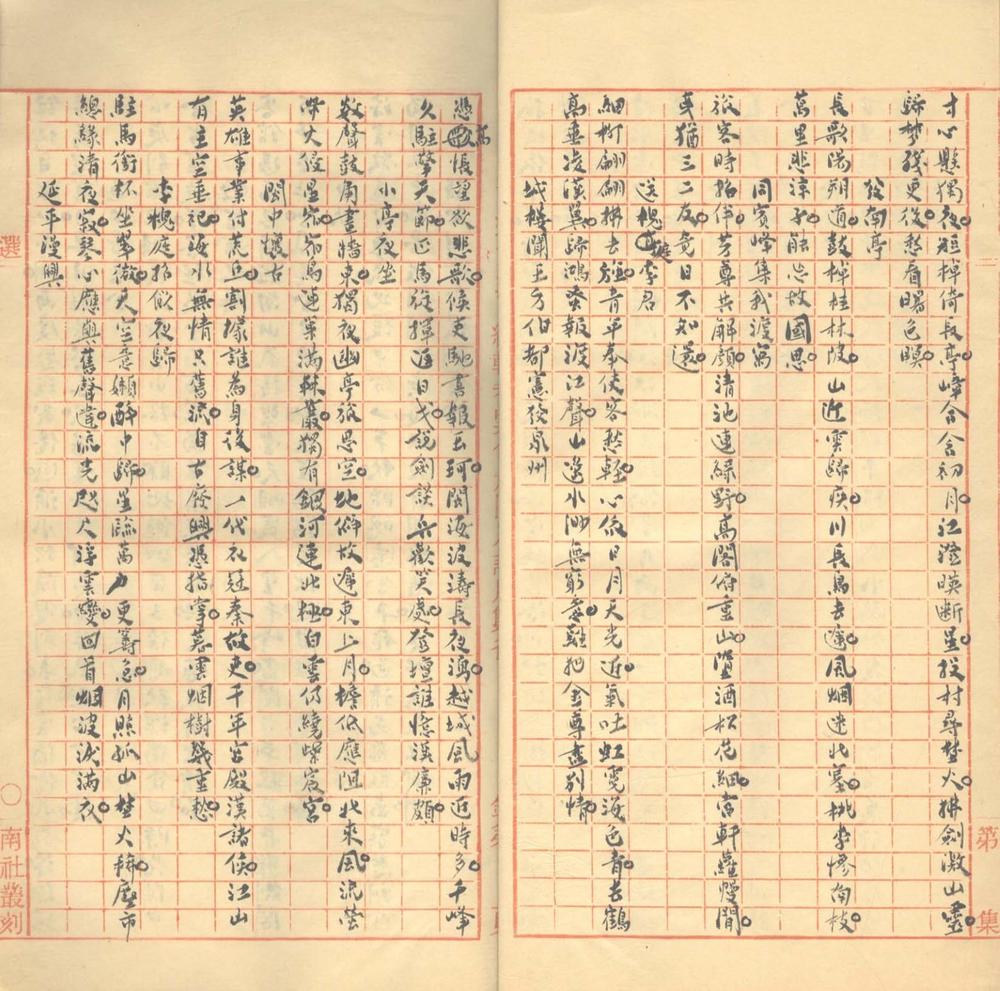 第
集
寸心懸獨夜。短棹倚長亭。嶂合含初月。江澄暎斷星。投村尋埜火。拂劍激山靈。
歸夢殘更後。愁看曙色暝。
發南亭
長歌陽朔道。鼓棹桂林陂。山近雲歸疾。川長鳥去遲。風烟迷北塞。桃李慘南枝。
萬里悲涼子。能忘故國思。
同賓峰集我渡
旅客時招伴。芳尊共解顏。清池連綠野。高閣俯重山。酒杯花細。當軒蘿蹬閒。
猶三二友。竟日不知還。
送槐庭李君
細柳翩翩拂去旌。青平奉使客愁輕。心依日月天光近。氣吐虹霓海色青。去鶴
高垂凌漢翼。歸鴻索報渡江聲。山邊水無窮意。難把金尊盡別情。
城樓闌王方伯都憲發泉州
憑高悵望欲悲歌。候吏馳書報玉珂。閩海波濤長夜湧。越城風雨近時多。千峰
久駐擎天節。匹馬從揮返日戈。說劍談兵歡笑處。登壇誰憶漢廉頗。
小亭夜坐
數聲鼓角畫牆東。獨夜幽亭旅思空。地僻故遲東上月。檐低應阻北來風。流螢
帶火侵星宿。宿鳥連巢滿棘叢。獨有銀河連北極。白雲仍繞紫宸宮。
閩中懷古
英雄事業付荒丘。割據誰為身後謀。一代衣冠秦故吏。千年宮殿漢諸侯。江山
有主空垂祀。海水無情只舊流。自古廢興憑指掌。暮雲烟樹幾重愁。
李槐庭招飲夜歸
駐馬銜杯坐翠微。天空意嬾醉中歸。星臨萬户更籌急。月照孤山埜火稀。塵市
總緣清夜寂。琴心應與舊聲違。流光咫尺浮雲變。回首烟波淚滿衣。
延平漫興
選
〇南社叢刻